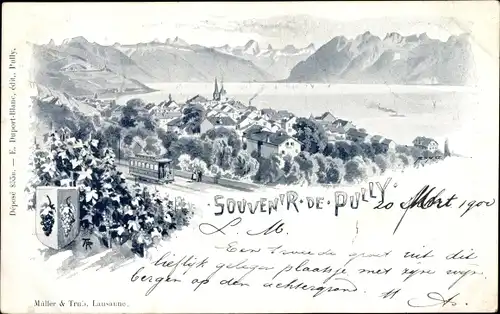 Déposé 855o. — E. Dupert-Blanc, édit., Pully.
SOUVENIR · DE · PULLY
20 Mrt 1900
L. M.
Een tweede groet uit dit
lieflijk gelegen plaatsje met zijn wijn
bergen op den achtergron. M
Müller & Trub, Lausanne.